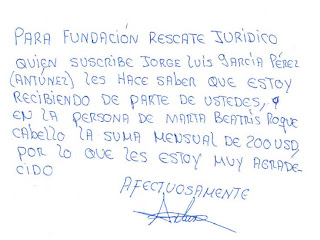 PARA FUNDACIÓN RESCATE JURÍDICO
QUIEN SUSCRIBE JORGE LUIS GARCÍA PÉREZ
(ANTÚNEZ) LES HACE SABER QUE ESTOY
RECIBIENDO DE PARTE DE USTEDES, Y
EN LA PERSONA DE MARTA BEATRIS ROQUE
CABELLO LA SUMA MENSUAL DE 200 USD,
POR LO QUE LES ESTOY MUY AGRADE-
CIDO
AFECTUOSAMENTE